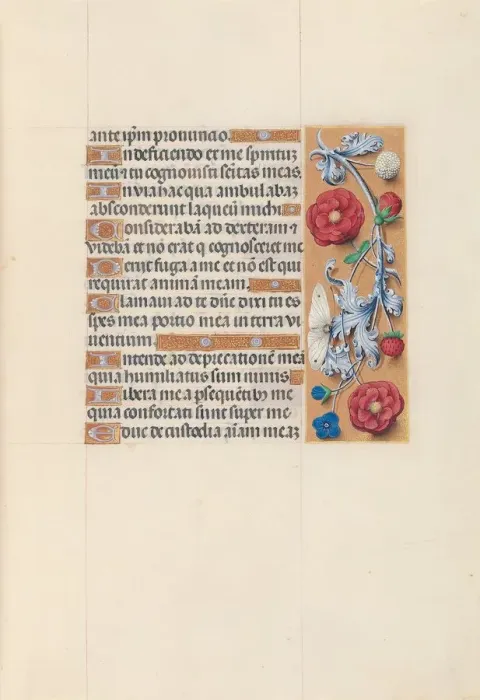 ante ip̄m pronuncio.
In deficiendo ex me spirituʒ
meū ⁊ tu cognouisti semitas meas.
In via hac qua ambulabaʒ
absconderunt laqueū michi.
Considerabā ad dexteram ⁊
videbā et nō erat q̄ cognosceret me
Perijt fuga a me et nō est qui
requirat animā meam.
Clamaui ad te dn̄e dixi tu es
spes mea portio mea in terra vi
uentium.
Intende ad deprecationē meā
quia humiliatus sum nimis.
Libera me a ꝑsequētibꝰ me
quia confortati sunt super me
Educ de custodia aīam meaʒ